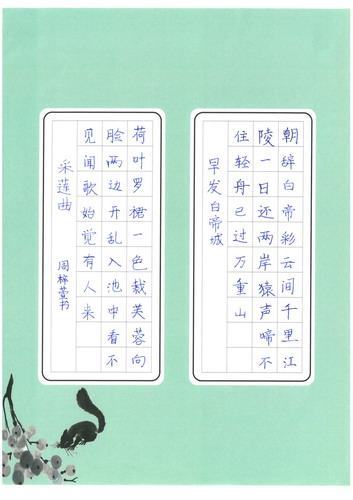 朝辞白帝彩云间千里江
陵一日还两岸猿声啼不
住轻舟已过万重山
早发白帝城
荷叶罗裙一色裁芙蓉向
脸两边开乱入池中看不
见闻歌始觉有人来
采莲曲
周梓萱书